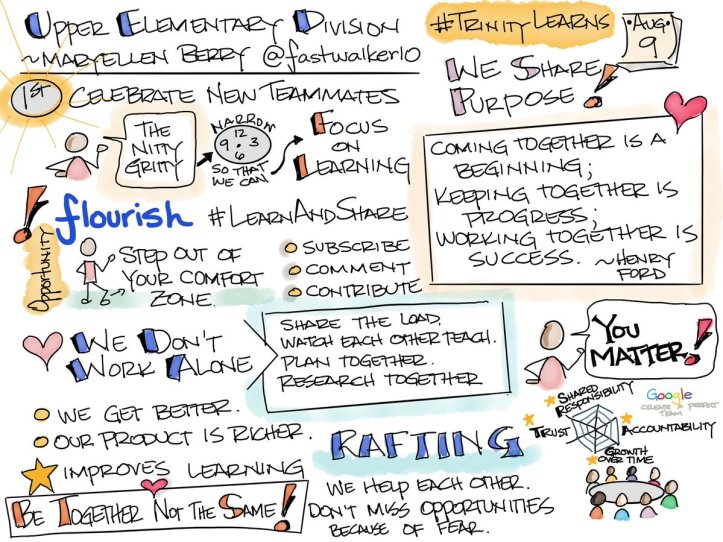 Upper Elementary Division
~Maryellen Berry @fastwalker10
#TrinityLearns
Aug.
9
1st
Celebrate New Teammates
The
Nitty
Gritty
Narrow
12
9 3
6
So that
we can
Focus
on
Learning
We Share
Purpose!
Coming together is a
beginning;
Keeping together is
progress;
Working together is
success. ~Henry
Ford
Opportunity!
flourish #LearnAndShare
Step out of
your comfort
zone.
Subscribe
Comment
Contribute
We Don't
Work Alone
Share the load.
Watch each other teach.
Plan together.
Research together
You
Matter!
We get better.
Our product is richer.
Improves learning
Be Together Not the Same!
RAFTING
We help each other.
Don't miss opportunities
because of fear.
Shared
Responsibility
Trust
Accountability
Growth
over time
Google
Create Perfect
Team